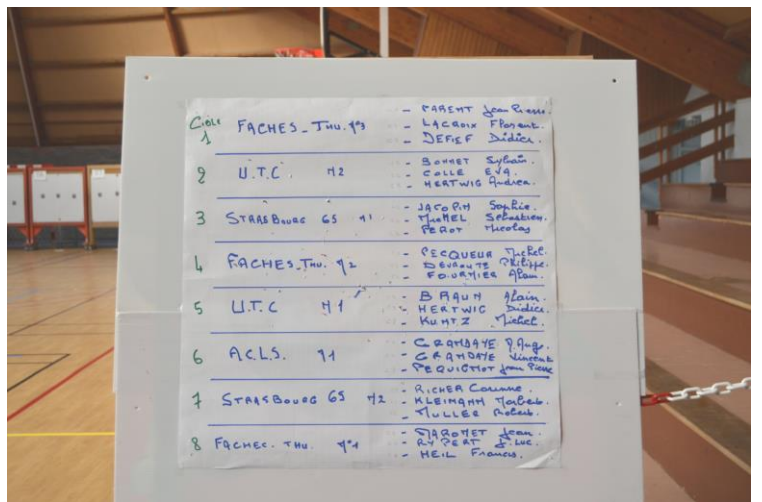 Cible
1 FACHES_THU. N°3 - PARENT Jean Pierre.
- LACROIX Florent.
- DEFIEF Didier.
2 U.T.C. N2 - BONNET Sylvain.
- COLLE EVA.
- HERTWIG Andrea.
3 STRASBOURG GS N1 - JACOPIN Sophie.
- MICHEL Sébastien.
- PEROT Nicolas
4 FACHES_THU. N2 - PECQUEUR Michel.
- Philippe.
- FOURNIER Alain.
5 U.T.C N1 - BRAUN Alain.
- HERTWIG Didier.
- KUNTZ Michel.
6 A.C.L.S. N1 - GRANDAYE P.Aug.
- GRANDAYE Vincent
- PEQUIGNOT Jean Pierre
7 STRASBOURG GS N2 - RICHER Corinne.
- KLEIMANN Norbert.
- MULLER Robert.
8 FACHES. THU. N°1 - Jean.
- RYPERT J.Luc.
- HEIL Francis.